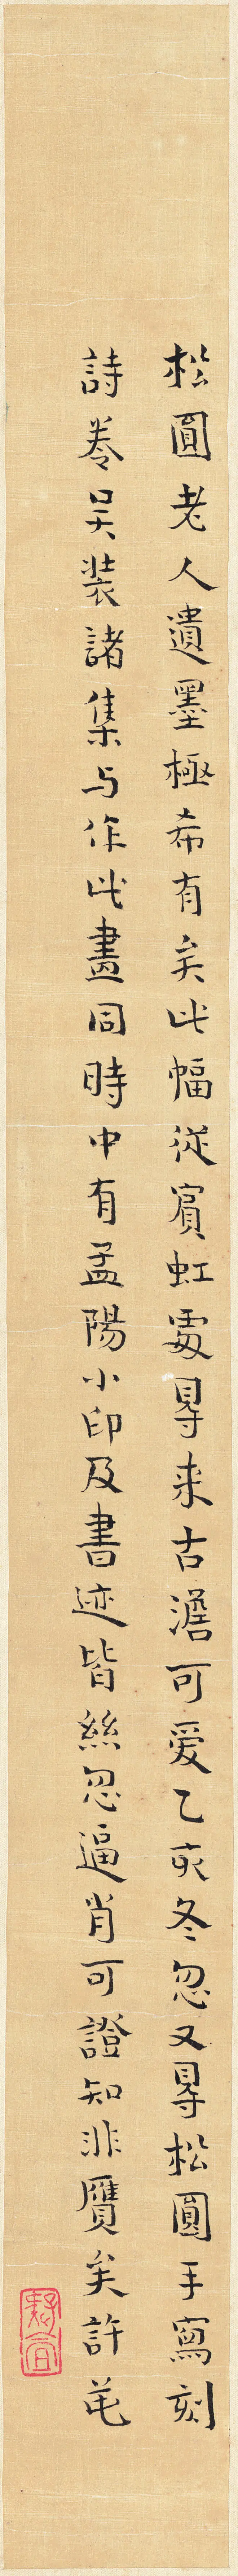 松圓老人遺墨極希有矣此幅從賓虹處㝵来古澹可爱乙亥冬忽又㝵松圓手寫刻
詩卷吴装諸集与作此畫同時中有孟陽小印及書迹皆絲忽逼肖可證知非贋矣許苚
疑盦